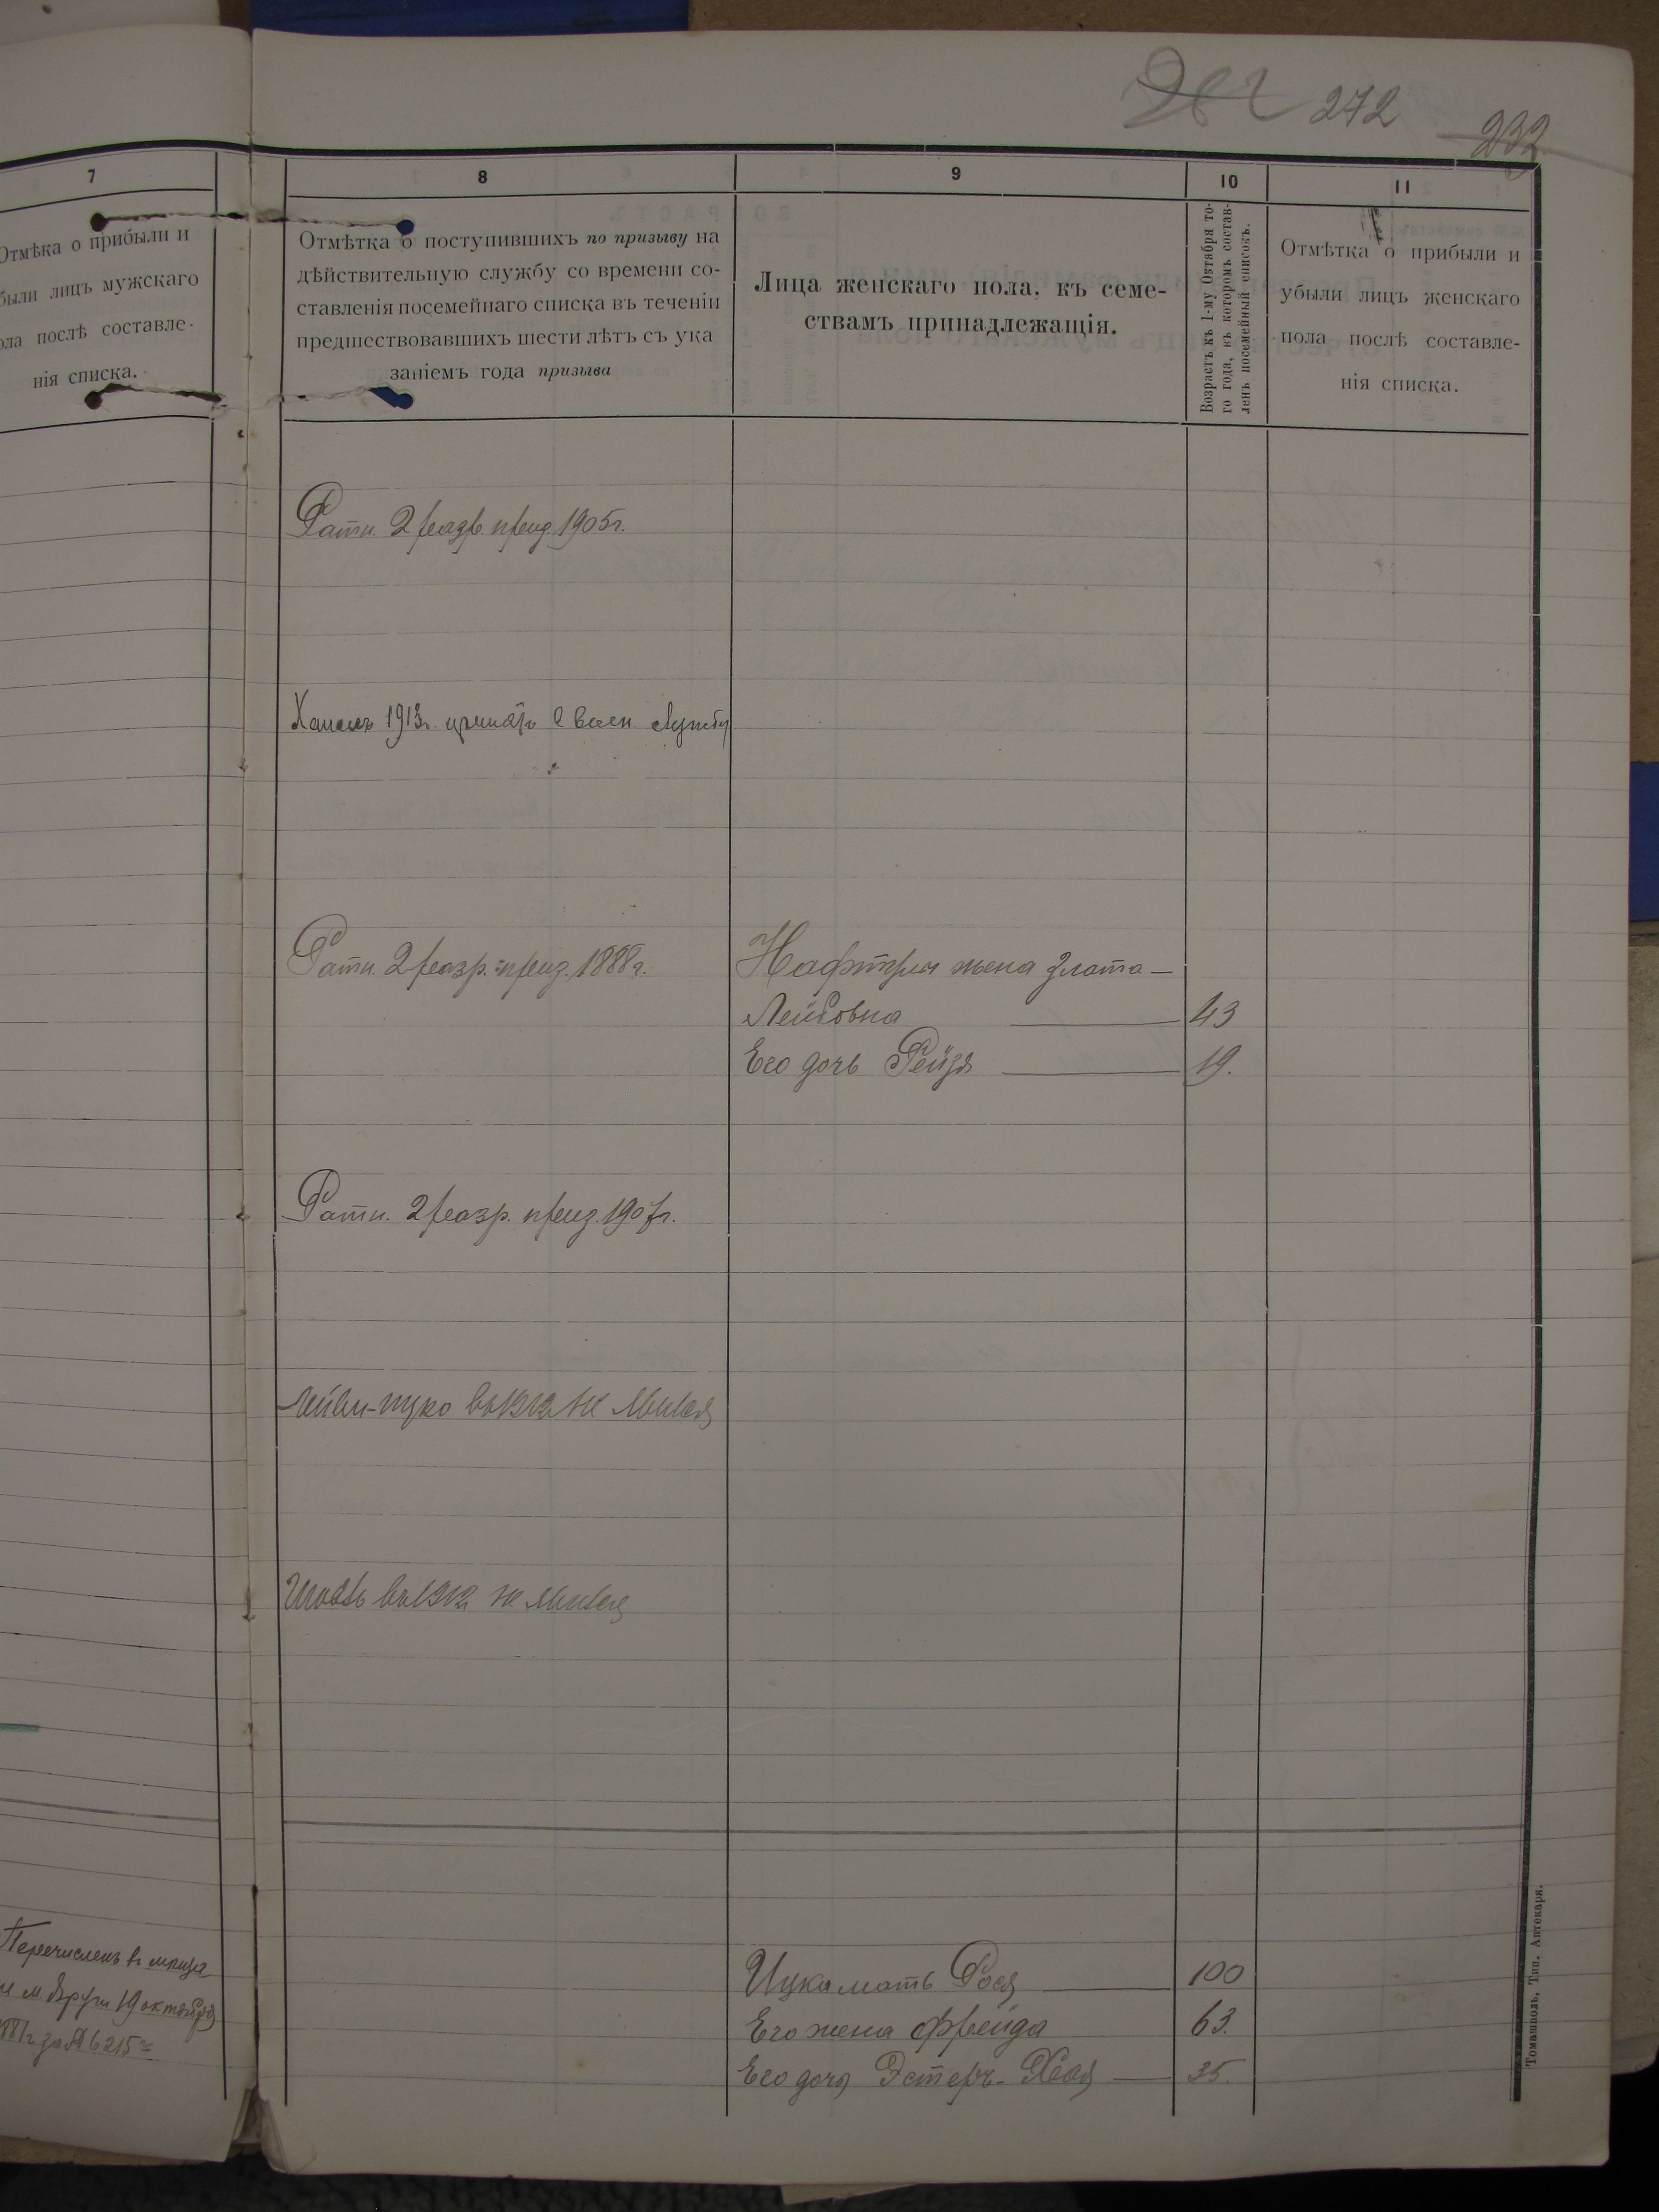 272
232
7
Отмѣтка о прибыли и
были лицъ мужскаго
ола послѣ составле-
нія списка.
8
Отмѣтка о поступившихъ по призыву на
дѣйствительную службу со времени со-
ставленія посемейнаго списка въ теченіи
предшествовавшихъ шести лѣтъ съ ука
заніемъ года призыва
9
Лица женскаго пола, къ семе-
ствамъ принадлежащія.
10
Возрастъ къ 1-му Октября то-
го года, въ которомъ состав-
ленъ посемейный списокъ.
11
Отмѣтка о прибыли и
убыли лицъ женскаго
пола послѣ составле-
нія списка.
Ратн. 2 разр. приз. 1905г.
1913г. принятъ
Ратн. 2 разр. приз. 1888г.
Нафтули жена Злата-
Лейбовна 43
Его дочь Рейзя 19.
Ратн. 2 разр. приз. 1907г.
въ 1912г не явился
въ 1912г не явился
Перечисленъ въ
19 октября
за № 6215
Ицка мать Рося 100
Его жена Фрейда 63.
Его дочь Эстеръ-Хая 35.
Томашполь, Тип. Аптекаря.